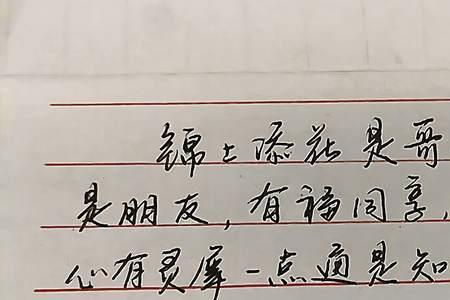 锦上添花是哥
是朋友，有福同享，
心有灵犀一点通是知